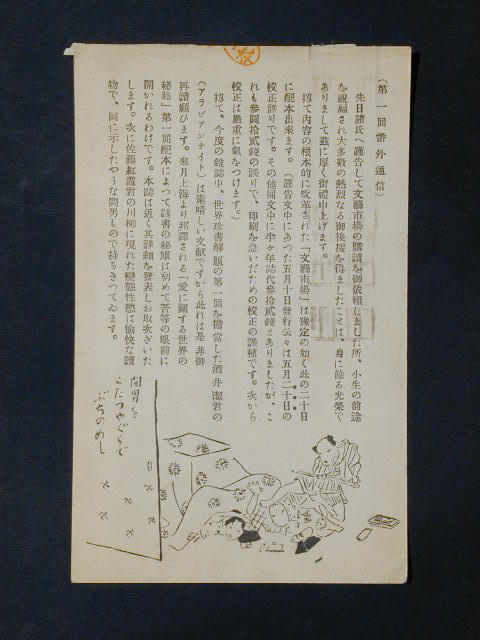 (第一回番外通信)
先日諸氏へ謹告して文藝市場の購讀を御依賴しました所、小生の前途
を祝福され大多數の熱烈なる御後援を得ましたことは、身に餘る光榮で
ありまして茲に厚く御禮申上げます。
扨て內容の根本的に改革された「文藝市場」は豫定の如く此の二十日
に配本出來ます。(謹告文中にあつた五月十日發行云々は五月二十日の
校正誤りです。その他同文中に半ヶ年誌代參拾貳錢とありましたが、こ
れも參圓拾貳錢の誤りで、印刷を急いだための校正の誤植です。次から
校正は嚴重に氣をつけます。)
扨て、今度の雜誌中、世界珍書解題の第一回を擔當した酒井潔君の
(アラビアンナイト)は素晴しい文獻ですから此れは是非御
再讀願ひます。來月上海より邦譯される「愛に關する世界の
秘籍」第一回配本によつて該書の秘庫は初めて吾等の眼前に
開かれるわけです。本誌は近く其詳細を發表しお取次ぎいた
します。次に佐藤紅霞君の川柳に現れた變態性慾は愉快な讀
物で、圖に示したやうな間男もので持ちきつてゐます。
間男を
こたつやぐらで
ぶちのめし